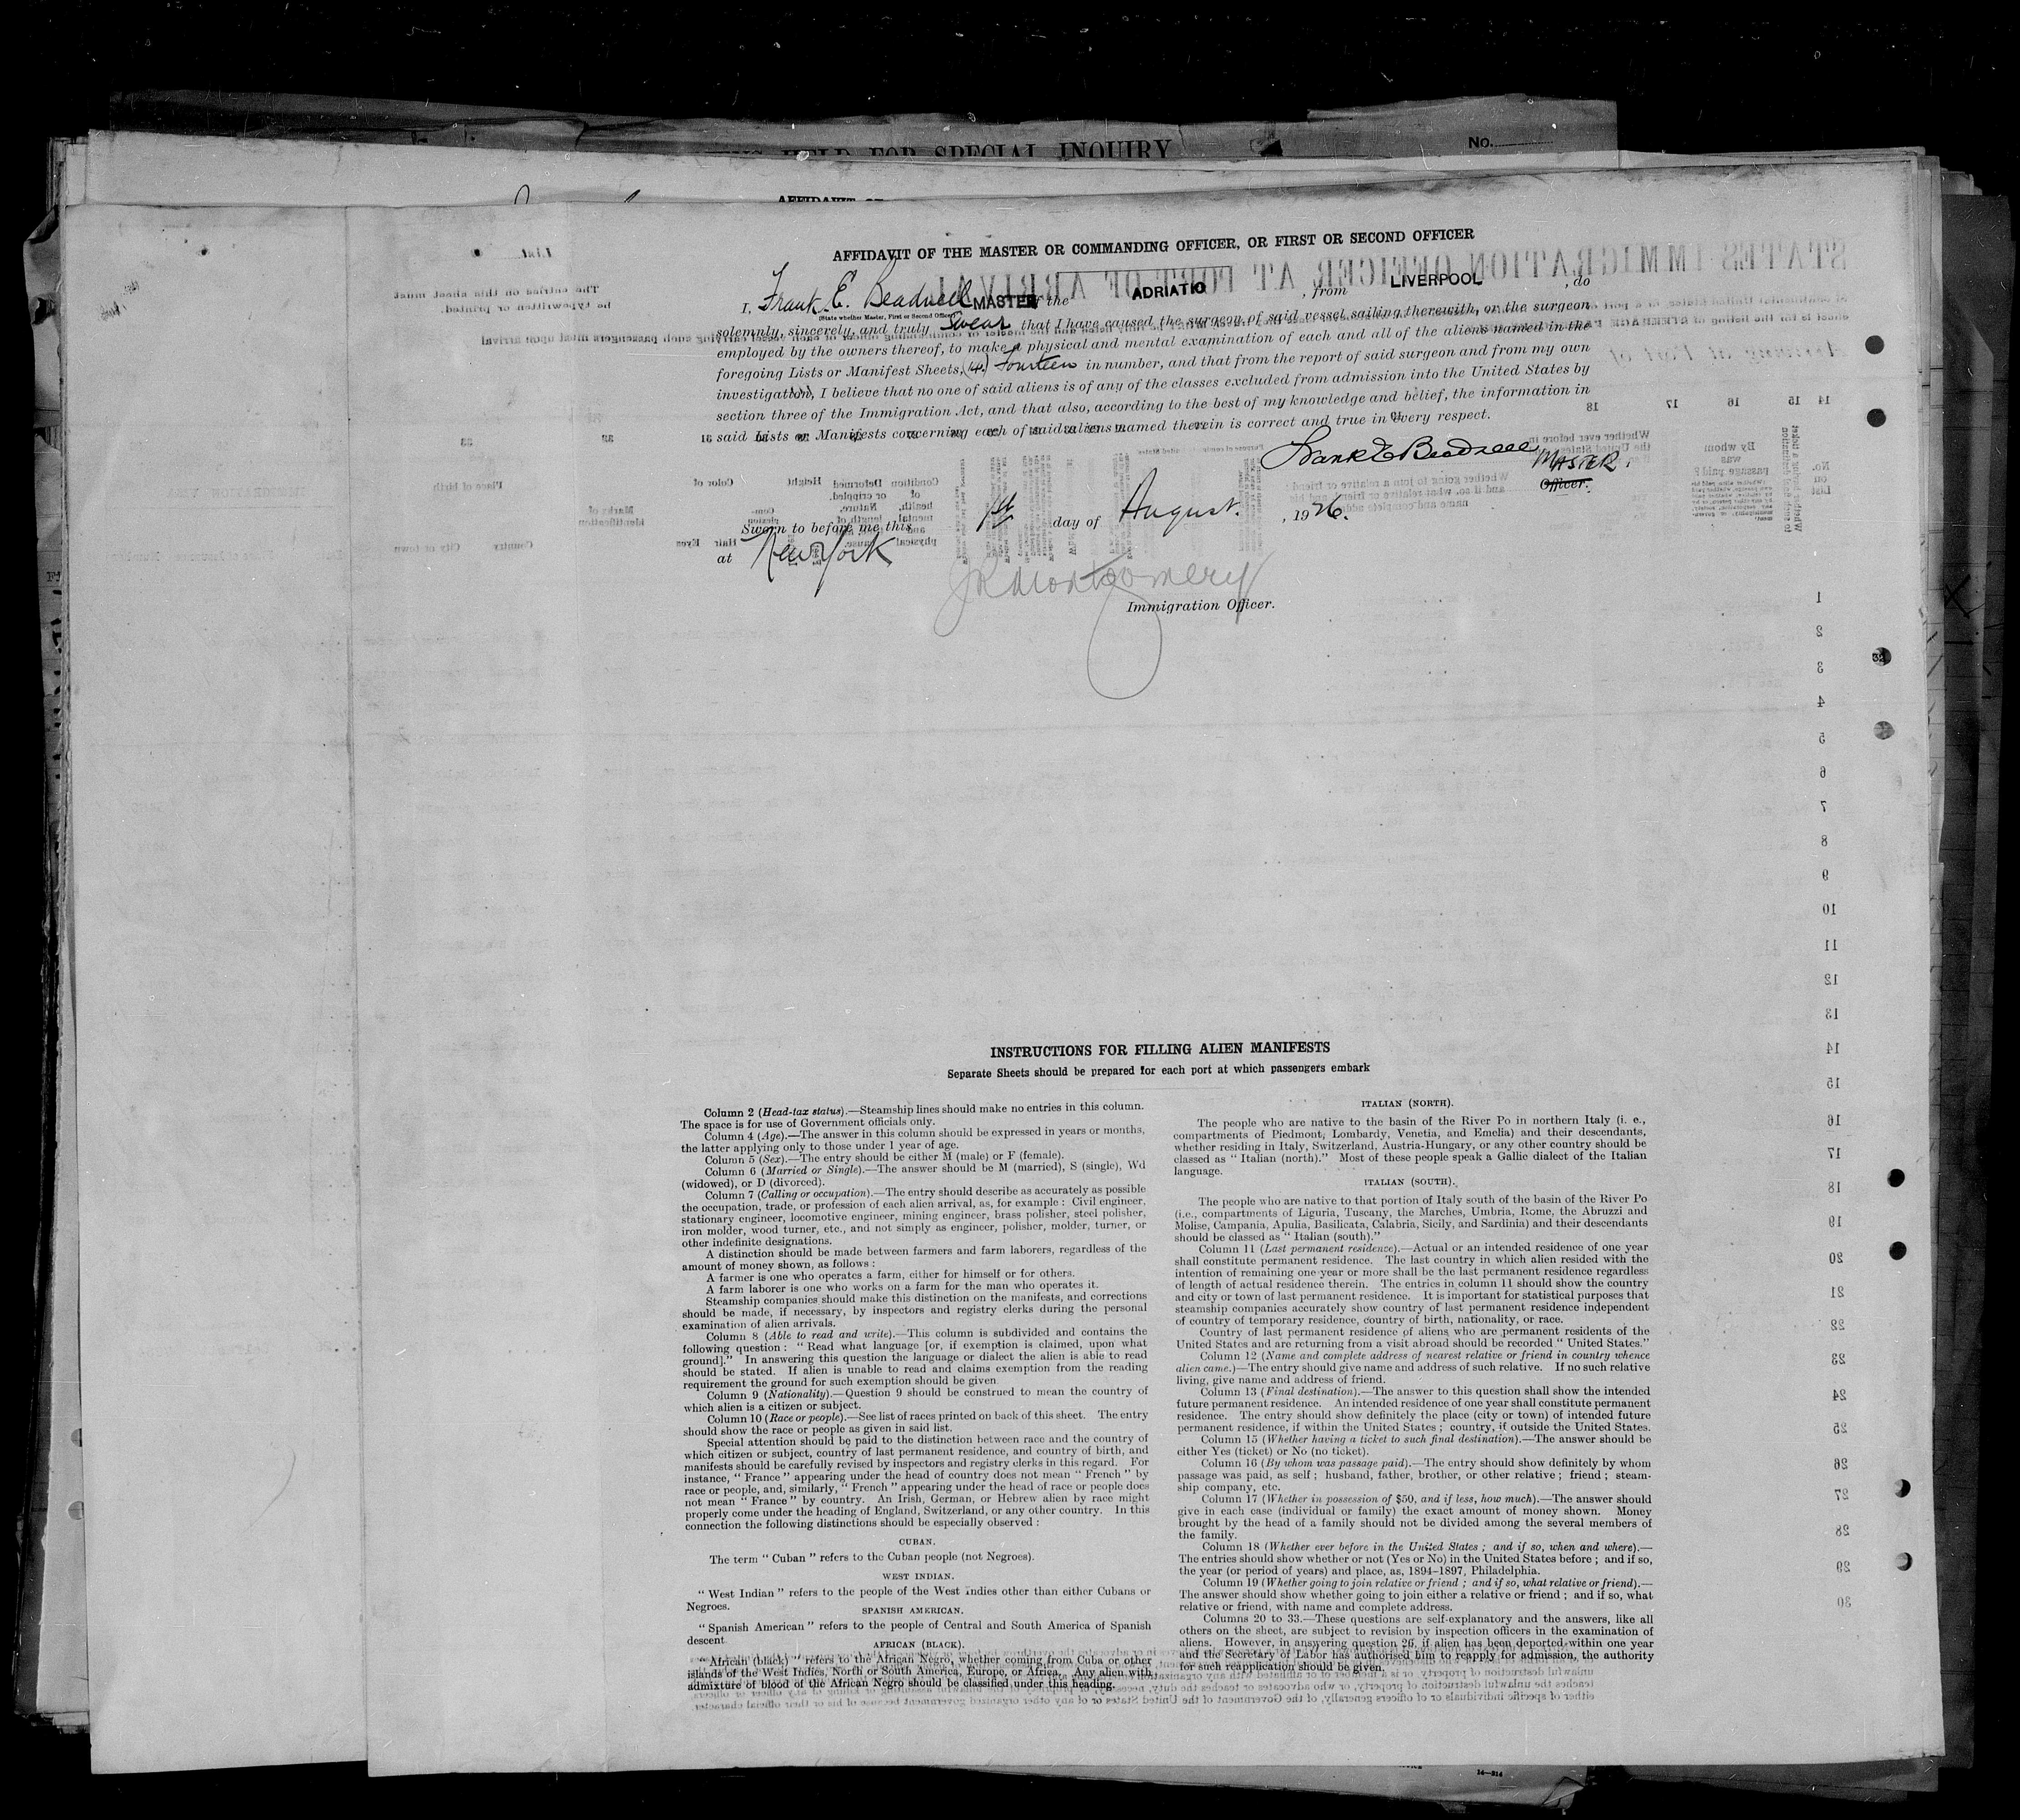 HELD FOR SPECIAL INQUIRY
No.
AFFIDAVIT OF THE MASTER OR COMMANDING OFFICER, OR FIRST OR SECOND OFFICER
I, Frank. E. Beadnell MASTER of the ADRIATIC, from LIVERPOOL, do
(State whether Master, First or Second Officer)
solemnly, sincerely, and truly Swear that I have caused the surgeon of said vessel sailing therewith, or the surgeon
employed by the owners thereof, to make a physical and mental examination of each and all of the aliens named in the
foregoing Lists or Manifest Sheets, (14.) Fourteen in number, and that from the report of said surgeon and from my own
investigation, I believe that no one of said aliens is of any of the classes excluded from admission into the United States by
section three of the Immigration Act, and that also, according to the best of my knowledge and belief, the information in
said Lists or Manifests concerning each of said aliens named therein is correct and true in every respect.
Frank E Beadnell MASTER.
Officer.
Sworn to before me this 1st day of August., 1926.
at New York
J R Montgomery
Immigration Officer.
INSTRUCTIONS FOR FILLING ALIEN MANIFESTS
Separate Sheets should be prepared for each port at which passengers embark
Column 2 (Head-tax status).—Steamship lines should make no entries in this column.
The space is for use of Government officials only.
Column 4 (Age).—The answer in this column should be expressed in years or months,
the latter applying only to those under 1 year of age.
Column 5 (Sex).—The entry should be either M (male) or F (female).
Column 6 (Married or Single).—The answer should be M (married), S (single), Wd
(widowed), or D (divorced).
Column 7 (Calling or occupation).—The entry should describe as accurately as possible
the occupation, trade, or profession of each alien arrival, as, for example : Civil engineer,
stationary engineer, locomotive engineer, mining engineer, brass polisher, steel polisher,
iron molder, wood turner, etc., and not simply as engineer, polisher, molder, turner, or
other indefinite designations.
A distinction should be made between farmers and farm laborers, regardless of the
amount of money shown, as follows :
A farmer is one who operates a farm, either for himself or for others.
A farm laborer is one who works on a farm for the man who operates it.
Steamship companies should make this distinction on the manifests, and corrections
should be made, if necessary, by inspectors and registry clerks during the personal
examination of alien arrivals.
Column 8 (Able to read and write).—This column is subdivided and contains the
following question : “ Read what language [or, if exemption is claimed, upon what
ground].” In answering this question the language or dialect the alien is able to read
should be stated. If alien is unable to read and claims exemption from the reading
requirement the ground for such exemption should be given
Column 9 (Nationality).—Question 9 should be construed to mean the country of
which alien is a citizen or subject.
Column 10 (Race or people).—See list of races printed on back of this sheet. The entry
should show the race or people as given in said list.
Special attention should be paid to the distinction between race and the country of
which citizen or subject, country of last permanent residence, and country of birth, and
manifests should be carefully revised by inspectors and registry clerks in this regard. For
instance, “ France ” appearing under the head of country does not mean “ French ” by
race or people, and, similarly, “ French ” appearing under the head of race or people does
not mean “ France ” by country. An Irish, German, or Hebrew alien by race might
properly come under the heading of England, Switzerland, or any other country. In this
connection the following distinctions should be especially observed :
CUBAN.
The term “ Cuban ” refers to the Cuban people (not Negroes).
WEST INDIAN.
“ West Indian ” refers to the people of the West Indies other than either Cubans or
Negroes.
SPANISH AMERICAN.
“ Spanish American ” refers to the people of Central and South America of Spanish
descent
AFRICAN (BLACK).
“ African (black) ” refers to the African Negro, whether coming from Cuba or other
islands of the West Indies, North or South America, Europe, or Africa. Any alien with
admixture of blood of the African Negro should be classified under this heading.
ITALIAN (NORTH).
The people who are native to the basin of the River Po in northern Italy (i. e.,
compartments of Piedmont, Lombardy, Venetia, and Emelia) and their descendants,
whether residing in Italy, Switzerland, Austria-Hungary, or any other country should be
classed as “ Italian (north).” Most of these people speak a Gallic dialect of the Italian
language.
ITALIAN (SOUTH).
The people who are native to that portion of Italy south of the basin of the River Po
(i.e., compartments of Liguria, Tuscany, the Marches, Umbria, Rome, the Abruzzi and
Molise, Campania, Apulia, Basilicata, Calabria, Sicily, and Sardinia) and their descendants
should be classed as “ Italian (south).”
Column 11 (Last permanent residence).—Actual or an intended residence of one year
shall constitute permanent residence. The last country in which alien resided with the
intention of remaining one year or more shall be the last permanent residence regardless
of length of actual residence therein. The entries in column 11 should show the country
and city or town of last permanent residence. It is important for statistical purposes that
steamship companies accurately show country of last permanent residence independent
of country of temporary residence, country of birth, nationality, or race.
Country of last permanent residence of aliens who are permanent residents of the
United States and are returning from a visit abroad should be recorded “ United States.”
Column 12 (Name and complete address of nearest relative or friend in country whence
alien came.)—The entry should give name and address of such relative. If no such relative
living, give name and address of friend.
Column 13 (Final destination).—The answer to this question shall show the intended
future permanent residence. An intended residence of one year shall constitute permanent
residence. The entry should show definitely the place (city or town) of intended future
permanent residence, if within the United States ; country, if outside the United States.
Column 15 (Whether having a ticket to such final destination).—The answer should be
either Yes (ticket) or No (no ticket).
Column 16 (By whom was passage paid).—The entry should show definitely by whom
passage was paid, as self ; husband, father, brother, or other relative ; friend ; steam-
ship company, etc.
Column 17 (Whether in possession of $50, and if less, how much).—The answer should
give in each case (individual or family) the exact amount of money shown. Money
brought by the head of a family should not be divided among the several members of
the family.
Column 18 (Whether ever before in the United States ; and if so, when and where).—
The entries should show whether or not (Yes or No) in the United States before ; and if so,
the year (or period of years) and place, as, 1894–1897, Philadelphia.
Column 19 (Whether going to join relative or friend ; and if so, what relative or friend).—
The answer should show whether going to join either a relative or friend ; and if so, what
relative or friend, with name and complete address.
Columns 20 to 33.—These questions are self-explanatory and the answers, like all
others on the sheet, are subject to revision by inspection officers in the examination of
aliens. However, in answering question 26, if alien has been deported within one year
and the Secretary of Labor has authorised him to reapply for admission, the authority
for such reapplication should be given.
14—214